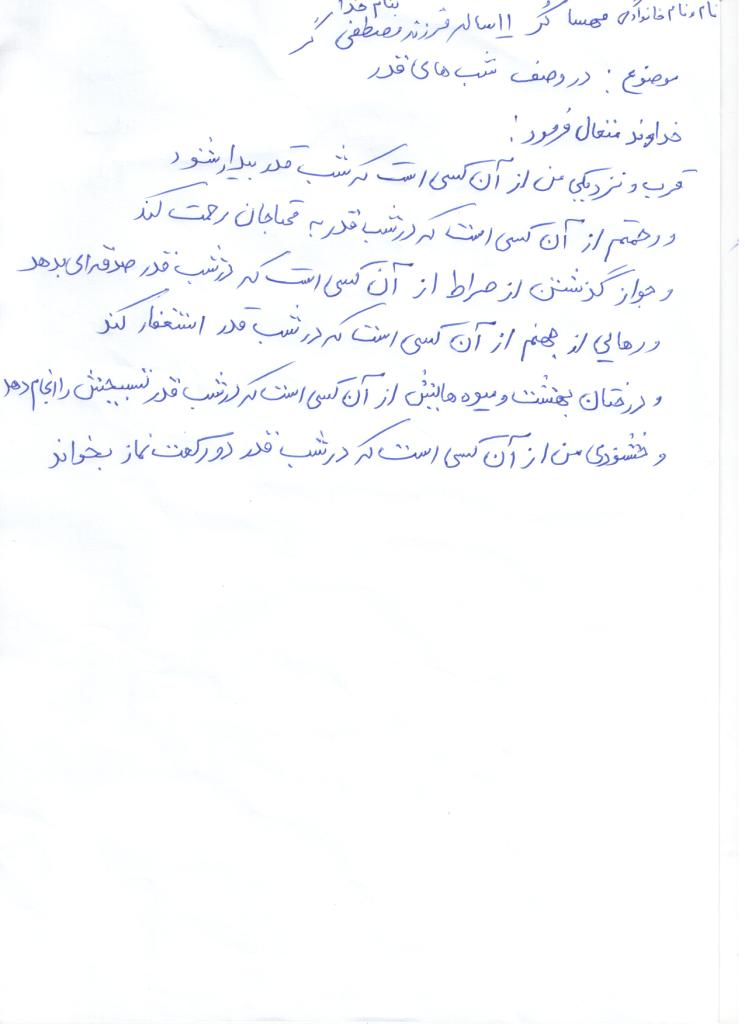 بنام خدا
نام و نام خانوادگی مهسا گر ۱۱ ساله فرزند مصطفی گر
موضوع : در وصف شب های قدر
خداوند متعال فرمود :
قرب و نزدیکی من از آن کسی است که شب قدر بیدار شود
و رحمتم از آن کسی است که در شب قدر به محتاجان رحمت کند
و جواز گذشتن از صراط از آن کسی است که در شب قدر صدقه ای بدهد
و رهایی از جهنم از آن کسی است که در شب قدر استغفار کند
و درختان بهشت و میوه هایش از آن کسی است که در شب قدر تسبیحش را انجام دهد
و خشنودی من از آن کسی است که در شب قدر دو رکعت نماز بخواند